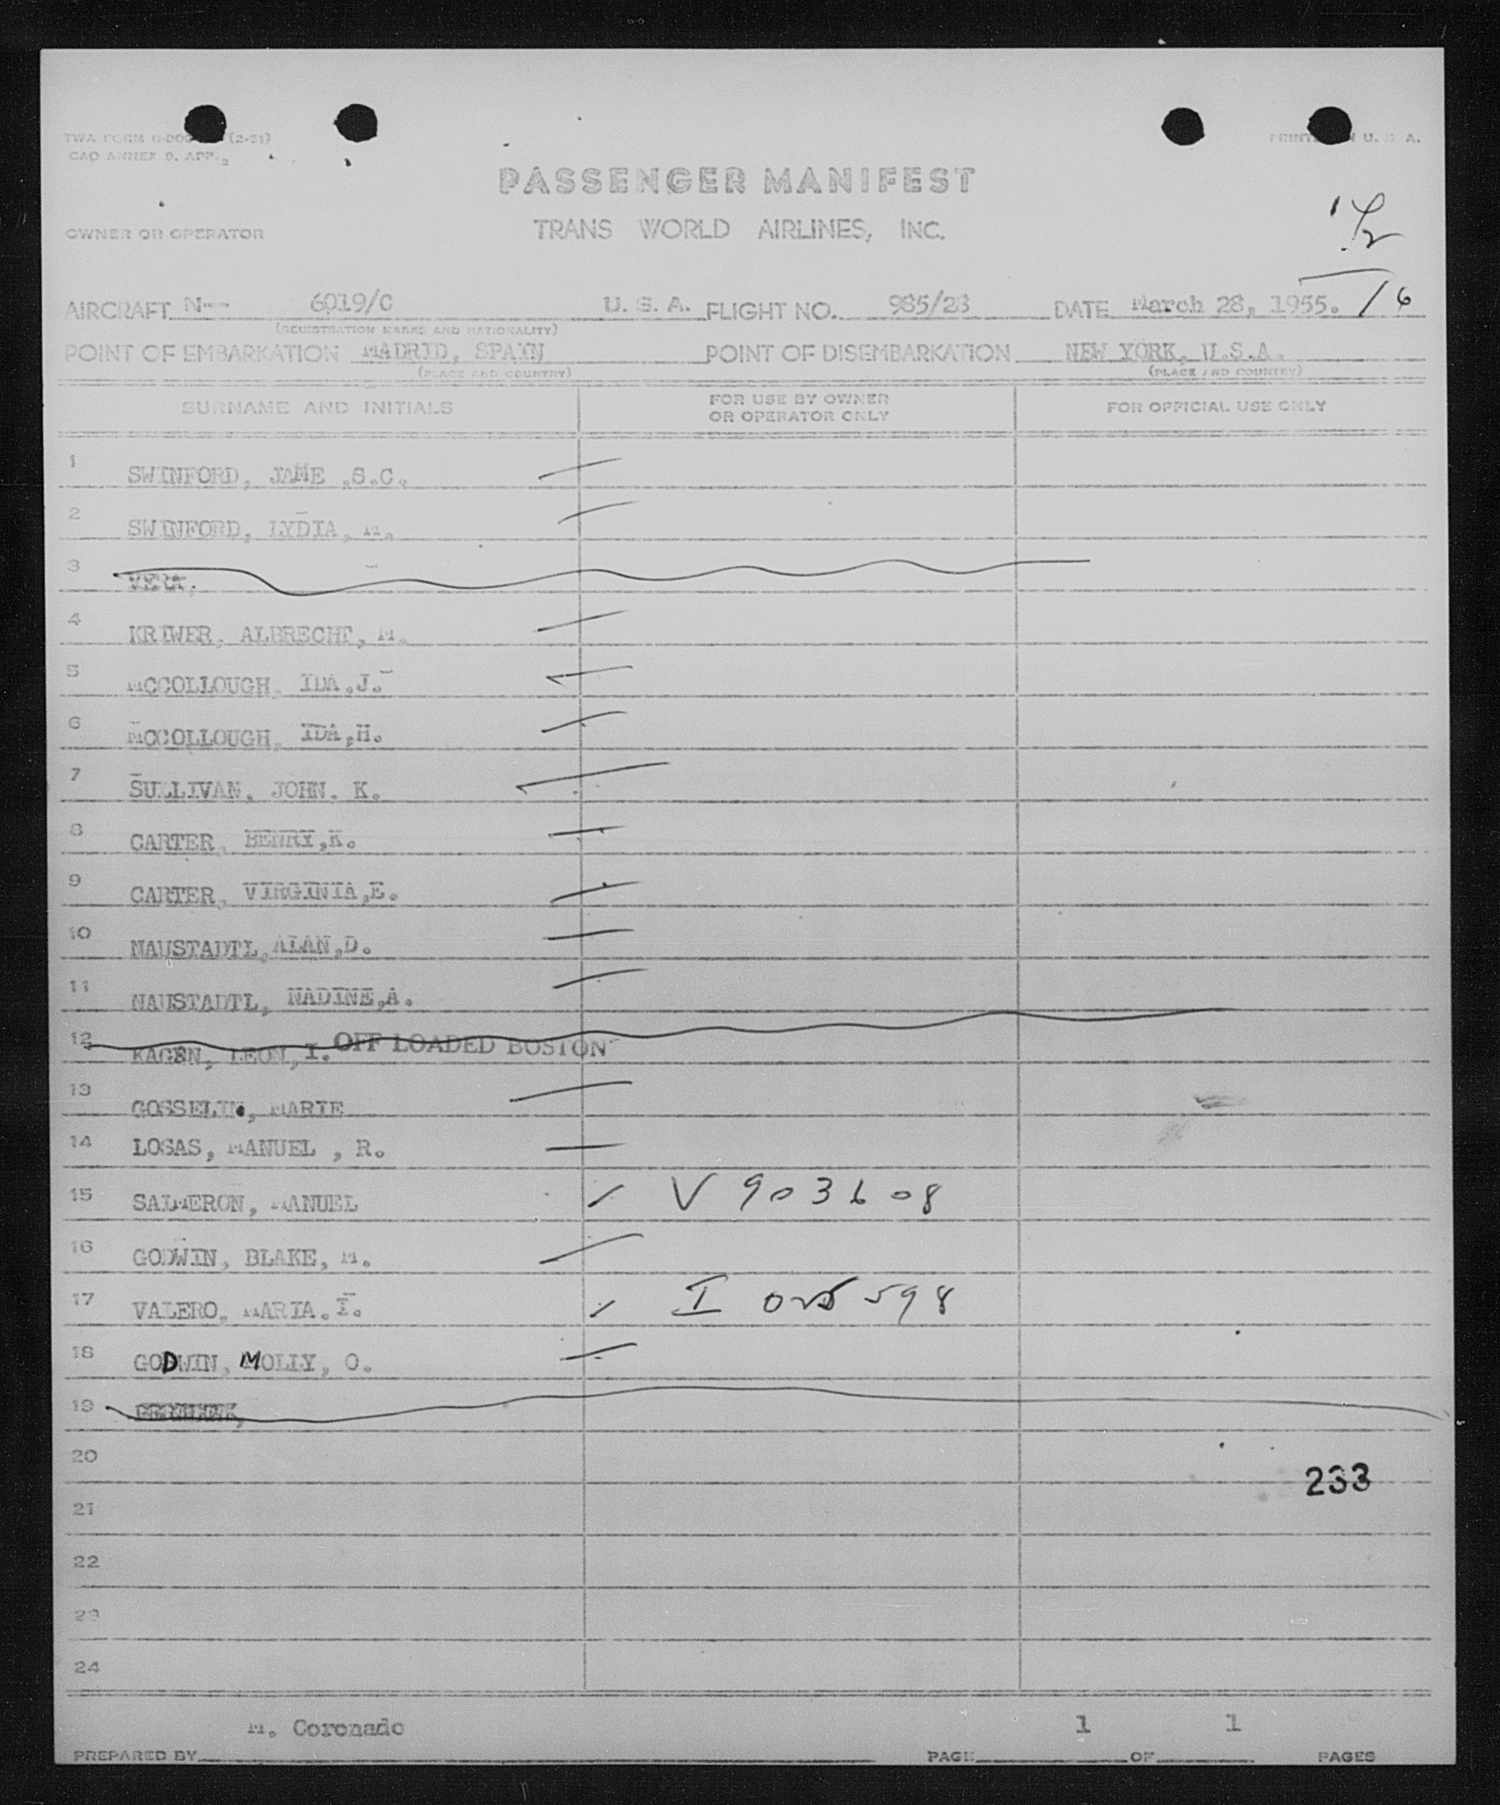 TWA FORM (2-51)
PRINTED IN U. S. A.
PASSENGER MANIFEST
OWNER OR OPERATOR
TRANS WORLD AIRLINES, INC.
AIRCRAFT N-- 6019/C U. S. A. FLIGHT NO. 985/28 DATE March 28, 1955. 16
(REGISTRATION MARKS AND NATIONALITY)
POINT OF EMBARKATION MADRID, SPAIN POINT OF DISEMBARKATION NEW YORK, U.S.A.
(PLACE AND COUNTRY) (PLACE AND COUNTRY)
SURNAME AND INITIALS FOR USE BY OWNER OR OPERATOR ONLY FOR OFFICIAL USE ONLY
1 SWINFORD, JAME .S.C.
2 SWINFORD, LYDIA, M.
3
4 KRIWER, ALBRECHT, M.
5 MCCOLLOUGH, IDA.J.
6 MCCOLLOUGH, IDA,H.
7 SULLIVAN, JOHN. K.
8 CARTER, HENRY,K.
9 CARTER, VIRGINIA,E.
10 NAUSTADTL, ALAN,D.
11 NAUSTADTL, NADINE,A.
12 KAGEN, LEON, I. OFF LOADED BOSTON
13 GOSSELIN, MARIE
14 LOSAS, MANUEL , R.
15 SALMERON, MANUEL V 903608
16 GODWIN, BLAKE, M.
17 VALERO, MARIA. I. I 025598
18 GODWIN, MOLLY, O.
19
20
233
21
22
23
24
M. Coronado 1 1
PREPARED BY PAGE OF PAGES